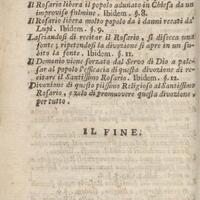 Il Rosario libera il popolo adunato in Chiesa da un
improviso fulmine. Ibidem. §. 8.
Il Rosario libera molto popolo da i danni recati da'
Lupi. Ibidem. §. 9.
Lasciandosi di recitar il Rosario, si disecca una
fonte; ripetendosi la divozione si apre in un su-
bito la fonte. Ibidem. §. 11.
Il Demonio viene forzato dal Servo di Dio a pale-
sar al popolo l'efficacia di questa divozione di re-
citare il Santissimo Rosario. Ibidem. §. 12.
Divozione di questo piissimo Religioso al Santissimo
Rosario, e zelo di promuovere questa divozione
per tutto.
IL FINE.